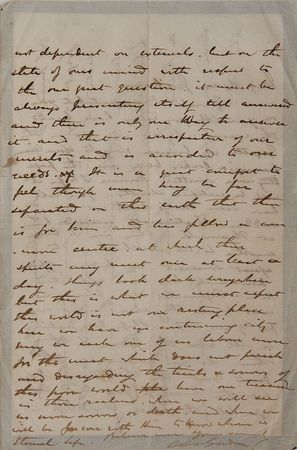 not dependent on externals, but on the
state of ones mind with respect to
the one great question, it must be
always presenting itself till answered
and there is only one way to answer
it, and that is irrespective of our
merits and is accorded to our
needs. It is a great comfort to
feel though men may be far
separated on this earth that there
is for him and his fellow a com-
mon centre, at which their
spirits may meet once at least a
day. things look dark everywhere
but this is what we must expect
this world is not our resting place
here we have no continuing city
may we each one of us labour more
for the meat which does not perish
and disregarding the trials & sorrows of
this poor world have our treasure
in those realms where we will see
no more sorrow or death, and where we
will be for ever with Him to know whom is
Eternal Life. Believe me